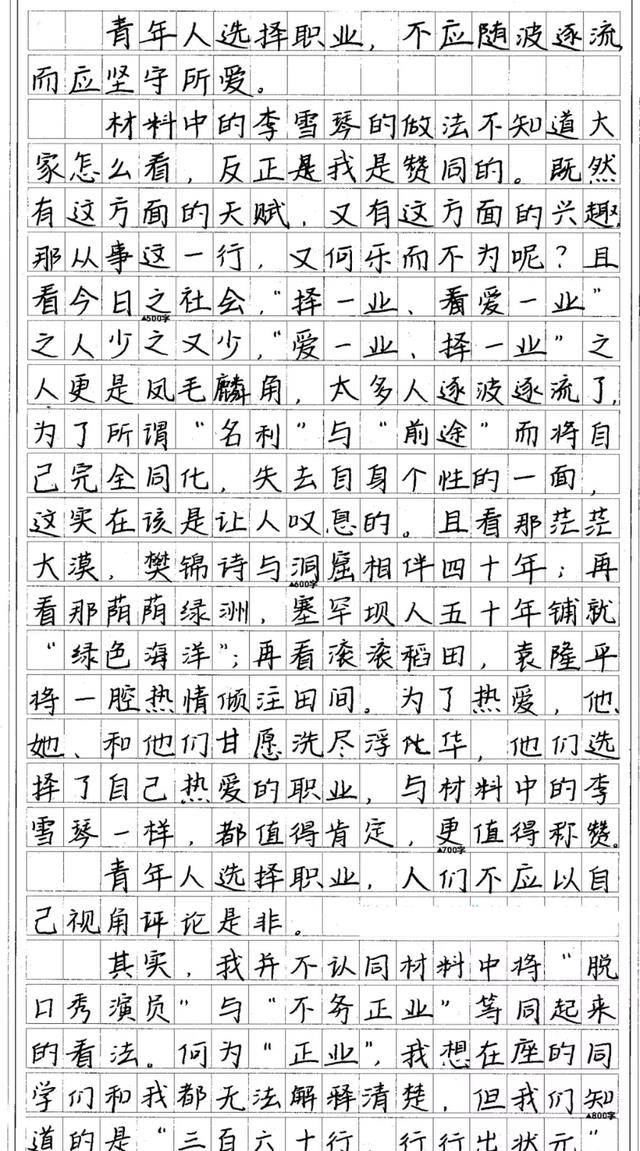 青年人选择职业，不应随波逐流，
而应坚守所爱。
材料中的李雪琴的做法不知道大
家怎么看，反正是我是赞同的。既然
有这方面的天赋，又有这方面的兴趣，
那从事这一行，又何乐而不为呢？且
看今日之社会，“择一业、看爱一业”
▲500字
之人少之又少，“爱一业、择一业”之
人更是凤毛麟角，太多人逐波逐流了，
为了所谓“名利”与“前途”而将自
己完全同化，失去自身个性的一面，
这实在该是让人叹息的。且看那茫茫
大漠，樊锦诗与洞窟相伴四十年；再
▲600字
看那荫荫绿洲，塞罕坝人五十年铺就
“绿色海洋”；再看滚滚稻田，袁隆平
将一腔热情倾注田间。为了热爱，他、
她、和他们甘愿洗尽浮化华，他们选
择了自己热爱的职业，与材料中的李
雪琴一样，都值得肯定，更值得称赞。
▲700字
青年人选择职业，人们不应以自
己视角评论是非。
其实，我并不认同材料中将“脱
口秀演员”与“不务正业”等同起来
的看法。何为“正业”，我想在座的同
学们和我都无法解释清楚，但我们知
▲800字
道的是“三百六十行，行行出状元”